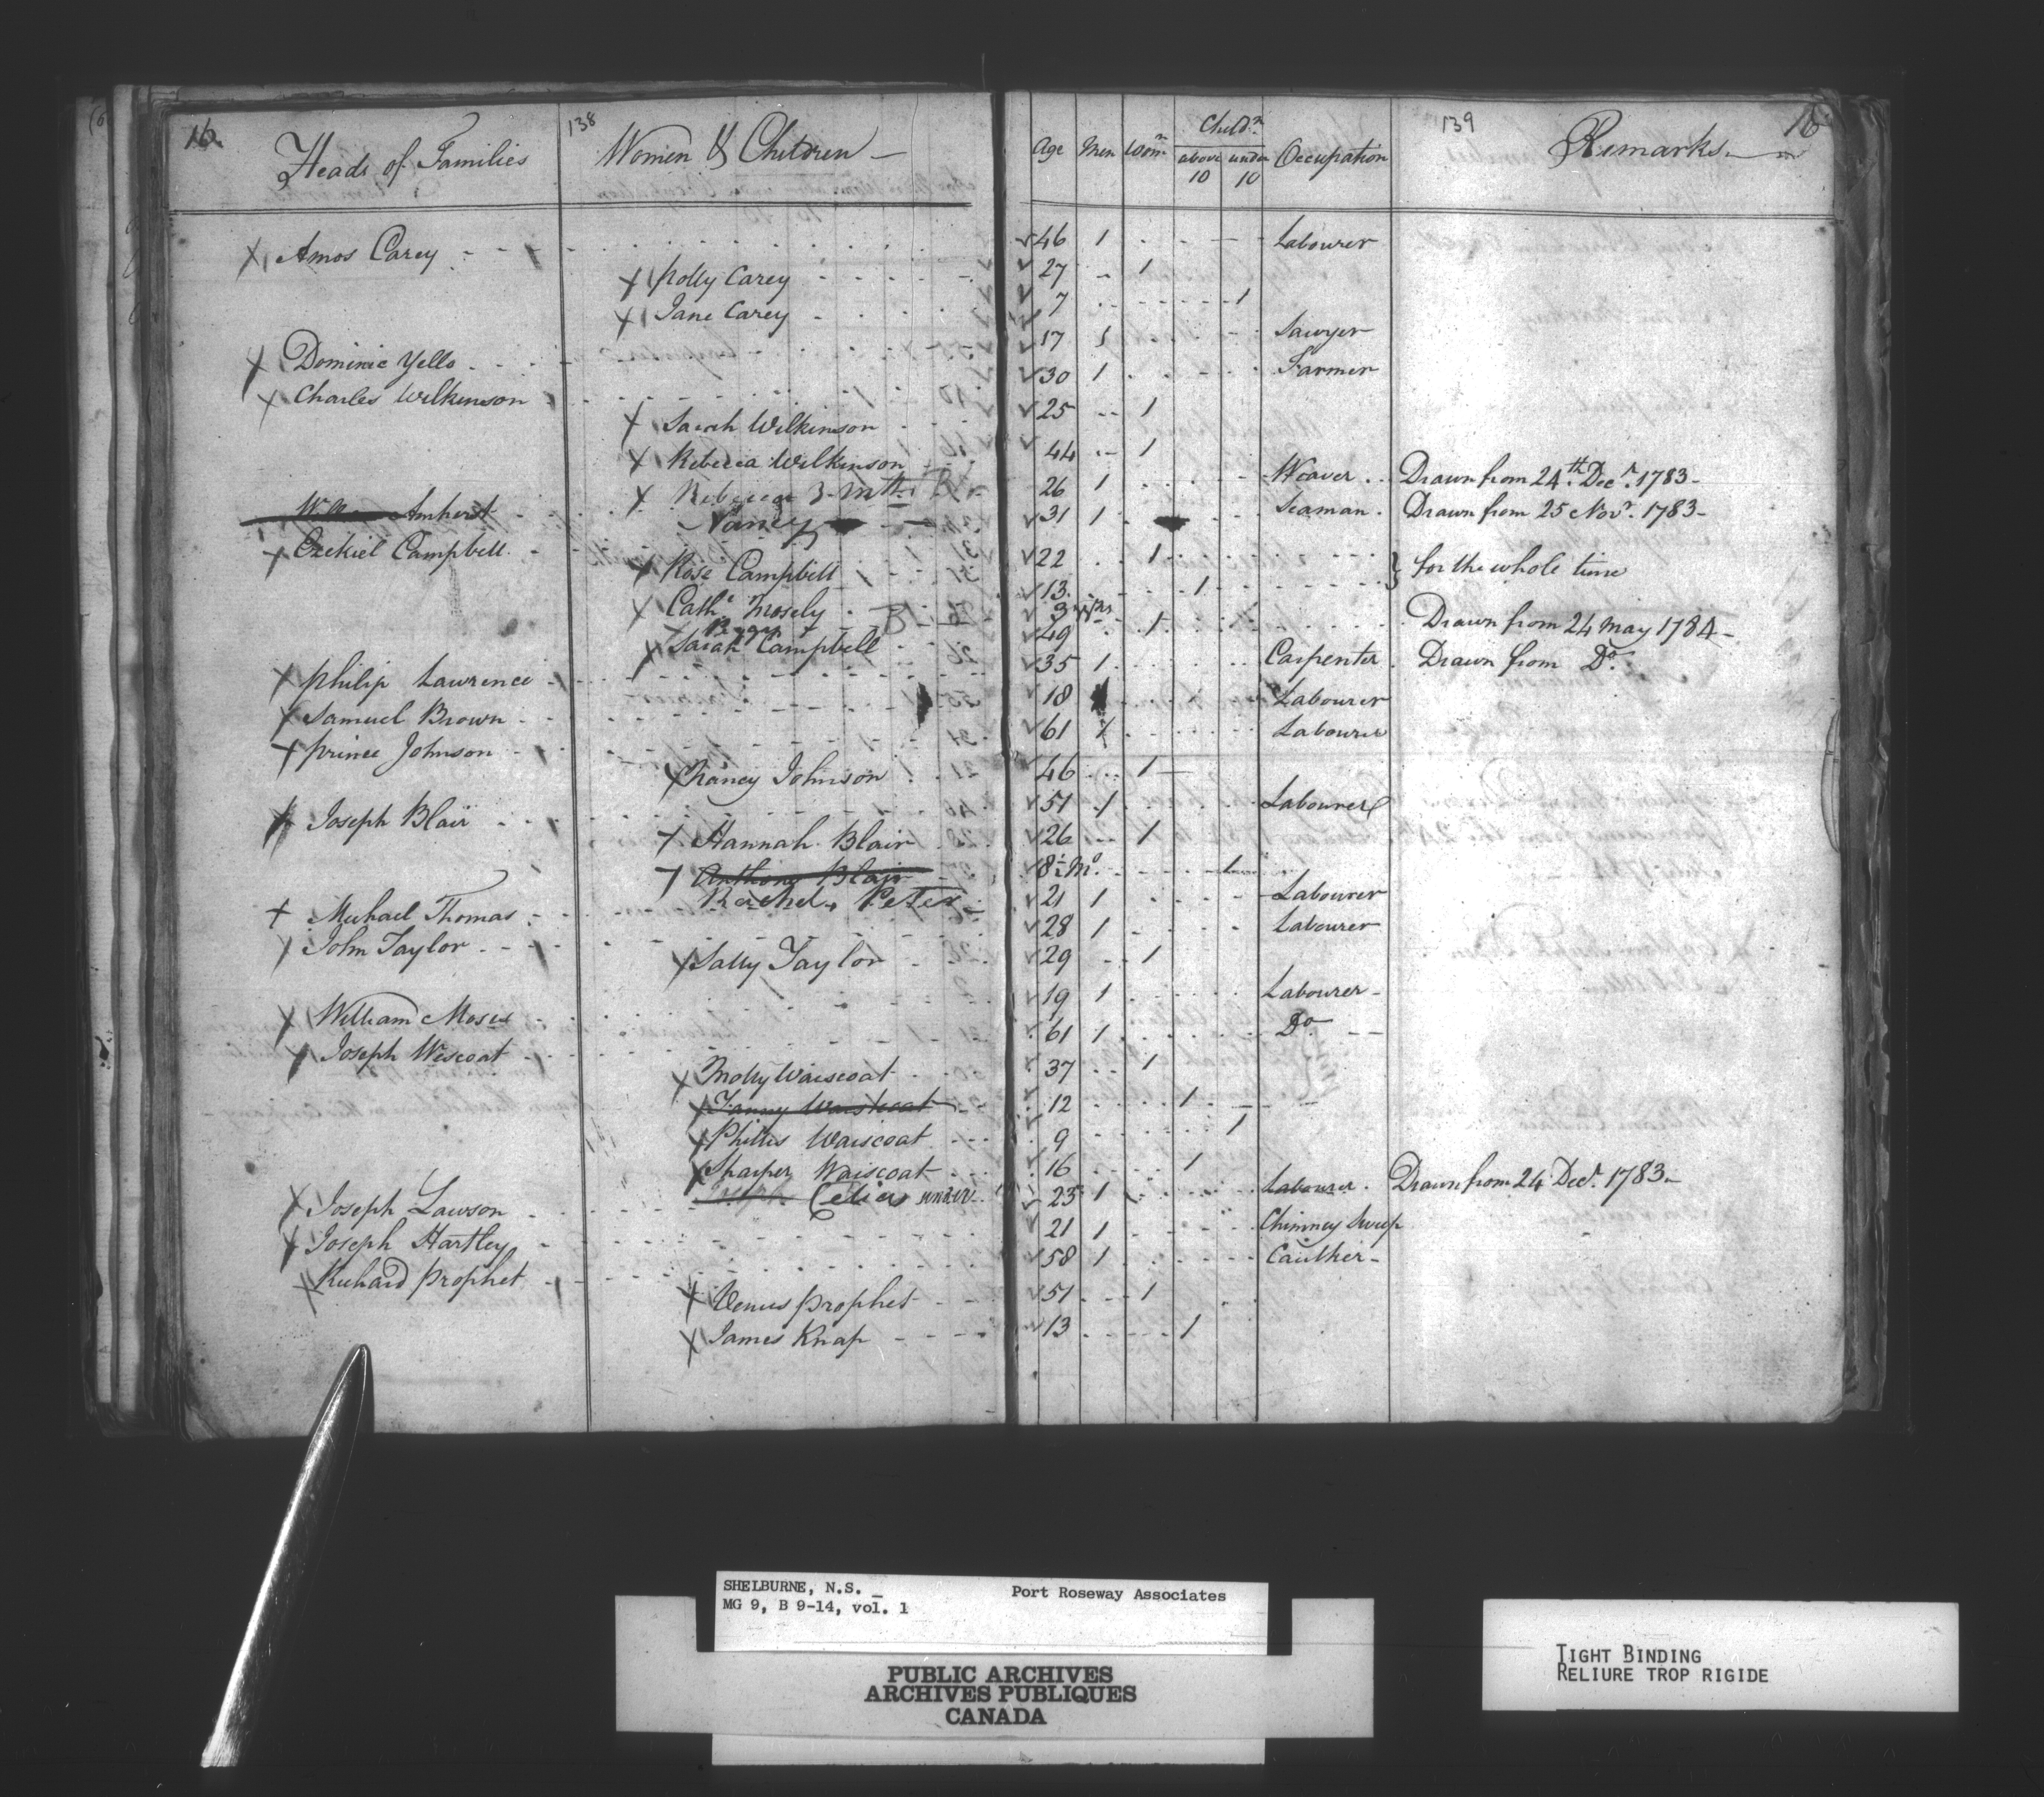 16 Heads of Families 138 Women & Children Age Men Wom.n Child.n above 10 under 10 Occupation 139 Remarks 16
Amos Carey 46 1 Labourer
Polly Carey 27 1
Jane Carey 7 1
Dominic Yello 17 1 Sawyer
Charles Wilkinson 30 1 Farmer
Sarah Wilkinson 25 1
Rebecca Wilkinson 44 1
Rebecca 3 Mth B
Amherst 26 1 Weaver Drawn from 24th Decr. 1783
Nancy
Ezekiel Campbell 31 1 Seaman Drawn from 25 Novr. 1783
Rose Campbell 22 1
Cathe Mosely 13 1 } for the whole time
B 3
Sarah Campbell 49 1 Drawn from 24 May 1784
Philip Lawrence 35 1 Carpenter Drawn from Do.
Samuel Brown 18 Labourer
Prince Johnson 61 1 Labourer
Nancy Johnson 46 1
Joseph Blair 51 1 Labourer
Hannah Blair 26 1
Anthony Blair 8½ Mo. 1
Rachel Peters
Michael Thomas 21 1 Labourer
John Taylor 28 1 Labourer
Sally Taylor 29 1
William Moses 19 1 Labourer
Joseph Wescoat 61 1 Do
Molly Waiscoat 37 1
Fanny Waiscoat 12 1
Phillis Waiscoat 9 1
Sharper Waiscoat 16 1
Celia under
Joseph Lawson 25 1 Labourer Drawn from 24 Decr. 1783
Joseph Hartley 21 1 Chimney Sweep
Richard Prophet 58 1 Caulker
Venus Prophet 51 1
James Knap 13 1
SHELBURNE, N.S. Port Roseway Associates
MG 9, B 9-14, vol. 1
PUBLIC ARCHIVES
ARCHIVES PUBLIQUES
CANADA
TIGHT BINDING
RELIURE TROP RIGIDE